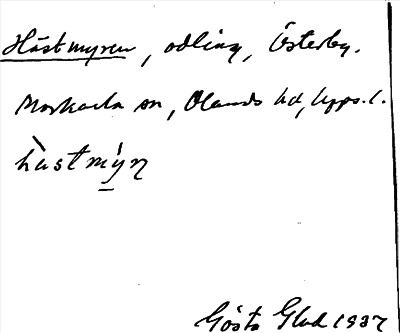 Hästmyren, odling, Österby.
Morkarla sn, Olands hd, Upps. l.
hà̀stmýn
Gösta Glad 1937